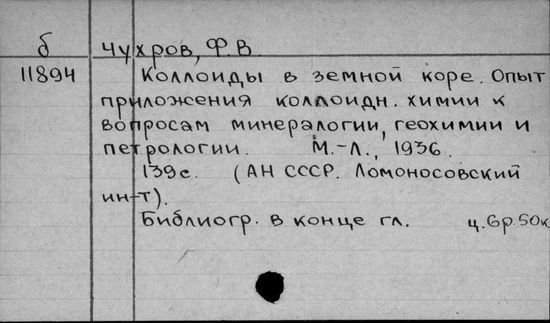 б Чухров, Ф.В.
11894 Коллоиды в земной коре. Опыт
приложения коллоидн. химии к
вопросам минералогии, геохимии и
петрологии. М.-Л., 1936.
139с. (АН СССР. Ломоносовский
ин-т).
Библиогр. в конце гл. ц. 6р. 50к